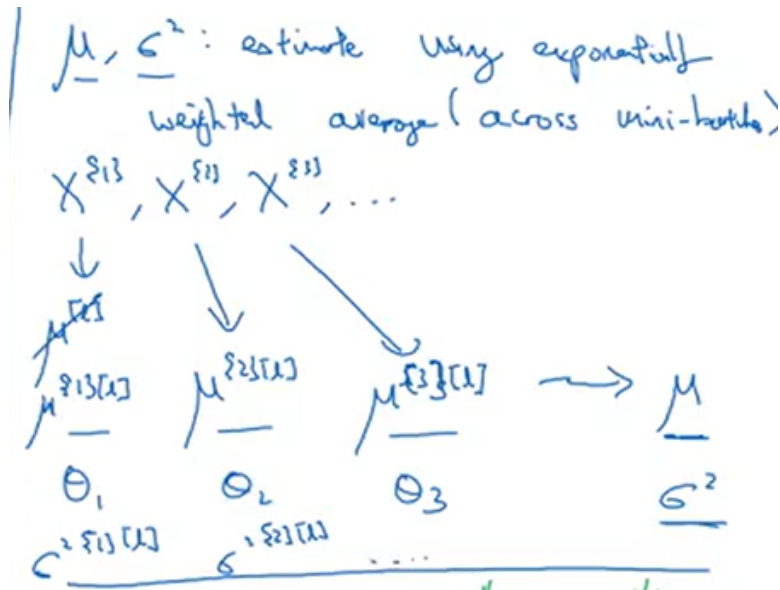 μ, σ²: estimate using exponentially
weighted average (across mini-batches)
X^{1}, X^{2}, X^{3}, ...
μ^[l]
μ^{1}[l] μ^{2}[l] μ^{3}[l] → μ
θ₁ θ₂ θ₃ σ²
σ²^{1}[l] σ²^{2}[l] ....